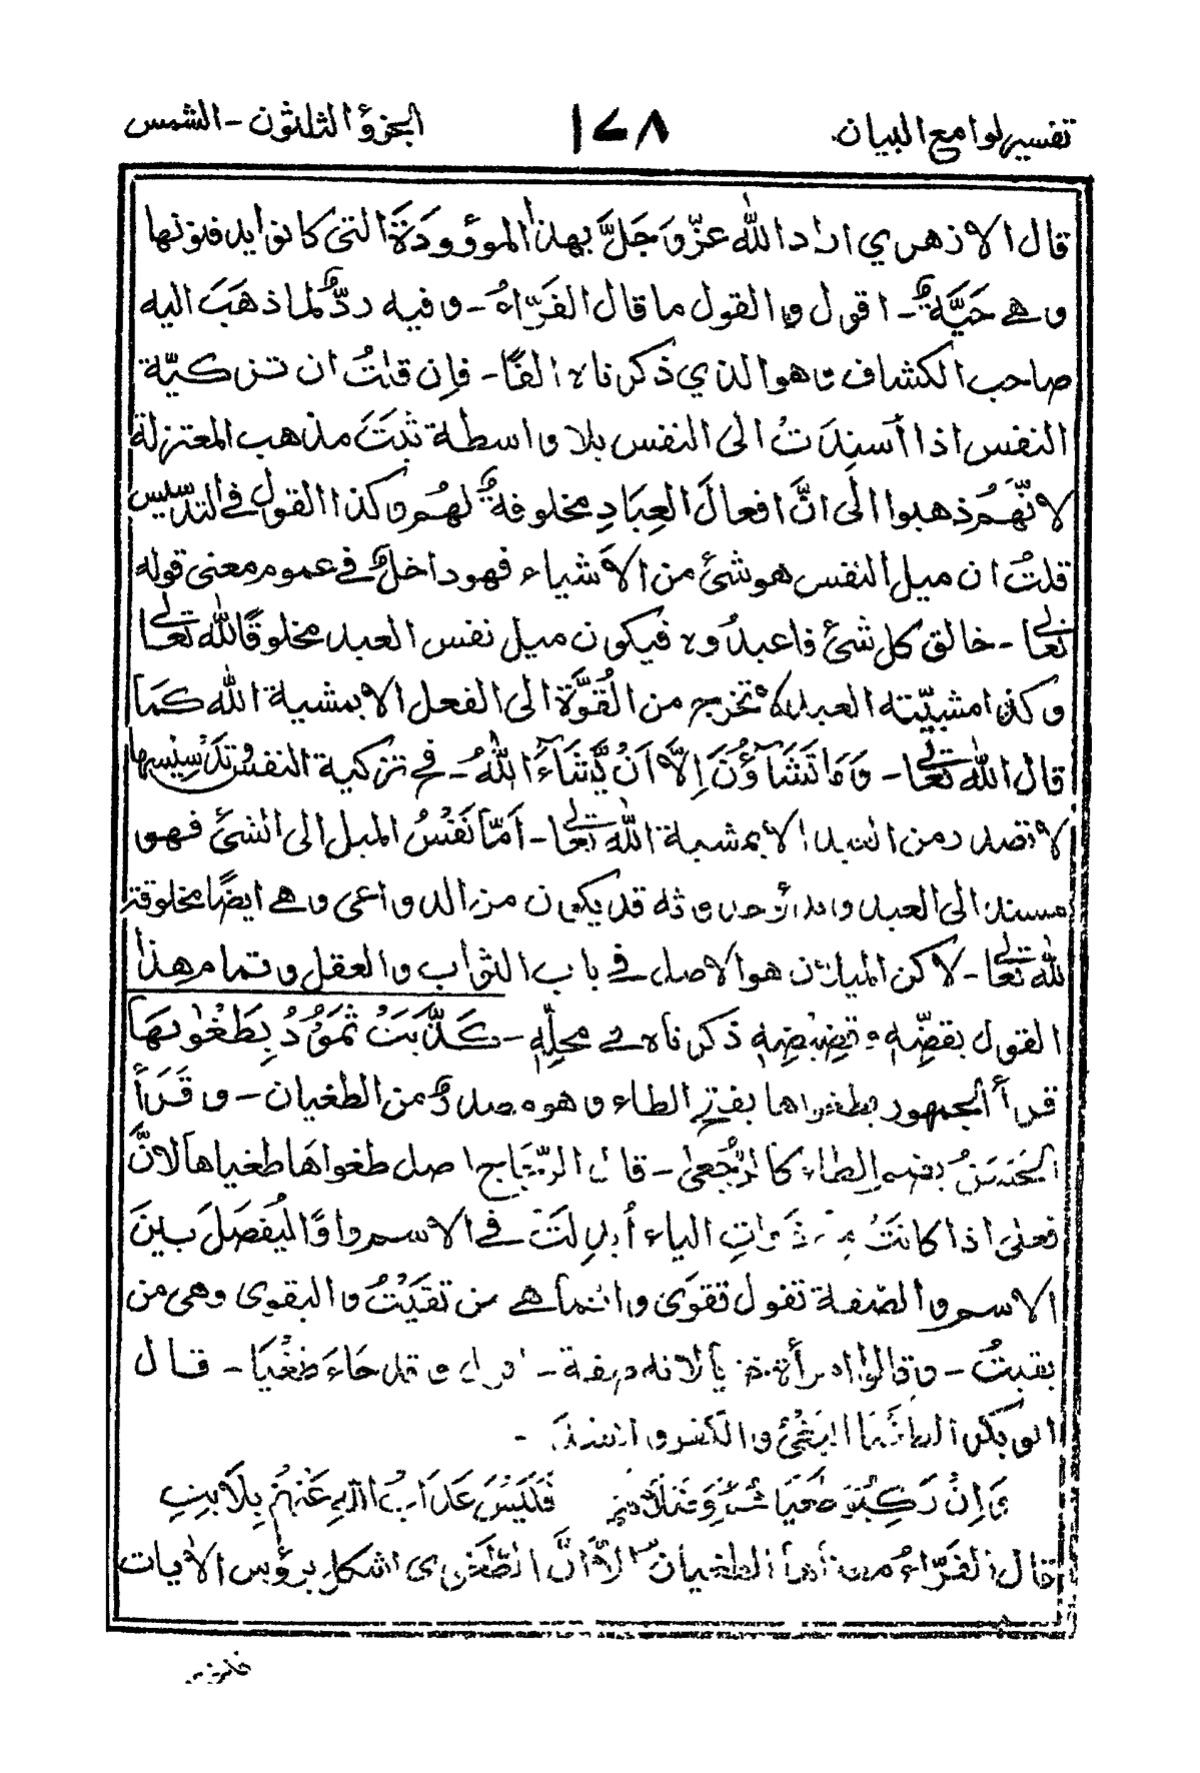 تفسير لوامع البيان ١٧٨ الجزؤ الثلثون - الشمس
قال الازهري اراد الله عزّ وَجَلَّ بهذا الموؤودَةَ التي كانوا يدفنونها
وهي حَيَّةٌ - اقول والقول ما قال الفَرّاءُ - وفيه ردٌّ لما ذهَبَ اليه
صاحب الكشاف وهو الذي ذكرناه انفًا - فإن قلتُ ان تزكيّة
النفس اذا أسنِدَتْ الى النفس بلا واسطة ثبَتَ مذهب المعتزلة
لانّهُم ذهبوا الى انَّ افعالَ العِبَادِ مخلوقةٌ لهُم وكذا القول في التدسيس
قلتُ ان ميل النفس هو شئ من الأشياء فهو داخلٌ في عموم معنى قوله
تعالى - خالق كل شئ فاعبدوه فيكون ميل نفس العبد مخلوقًا لله تعالى
وكذا مشيّته العبد لا تخرج من القُوَّة الى الفعل الا بمشية الله كمَا
قال الله تعالى - وَمَا تَشَآؤُنَ اِلَّا اَنْ يَّشَآءَ اللهُ - في تزكية النفس وتدسيسها
لا تصدر من العبد الا بمشية الله تعالى - امّا نَفْسُ الميل الى الشئ فهو
مسند الى العبد قد يكون من الدواعى وهي ايضًا مخلوقة
لله تعالى - لاكن الميلان هو الاصل في باب الثواب والعقل وتمام هذا
القول بقضِّه وقضيضِه ذكرناه في محلِّه - كَذَّبَتْ ثَمُوْدُ بِطَغْوٰىهَا
قرأ الجمهور بطغواها بفتح الطاء وهو مصدرٌ من الطغيان - وقَرَأَ
الحَسَنُ بضم الطاء كالرُّجعىٰ - قال الزّجّاج اصل طغواهَا طغياها لانَّ
فعلىٰ اذا كانَتْ من ذَوَاتِ الياء أُبدِلَتْ في الاسم واوًا ليُفصَلَ بينَ
الاسم والصّفة تقول تقوَى وانما هي من تقَيْتُ والبقوى وهي من
بقيتُ - وقالوا امرأة خزيا لانه صفة - اقول وقد جَاءَ طُغْيَا - قال
ابو بكر الطغيا البَغْىُ والكفر وانشد -
وَاِنْ رَكِبُوْا طغيَا فَلَيْسَ عَذَابُ اللهِ عَنْهُم بِلَابِثِ
قال الفَرّاءُ الطغيان الا انَّ الطَّغوى اشكل برؤس الأيات